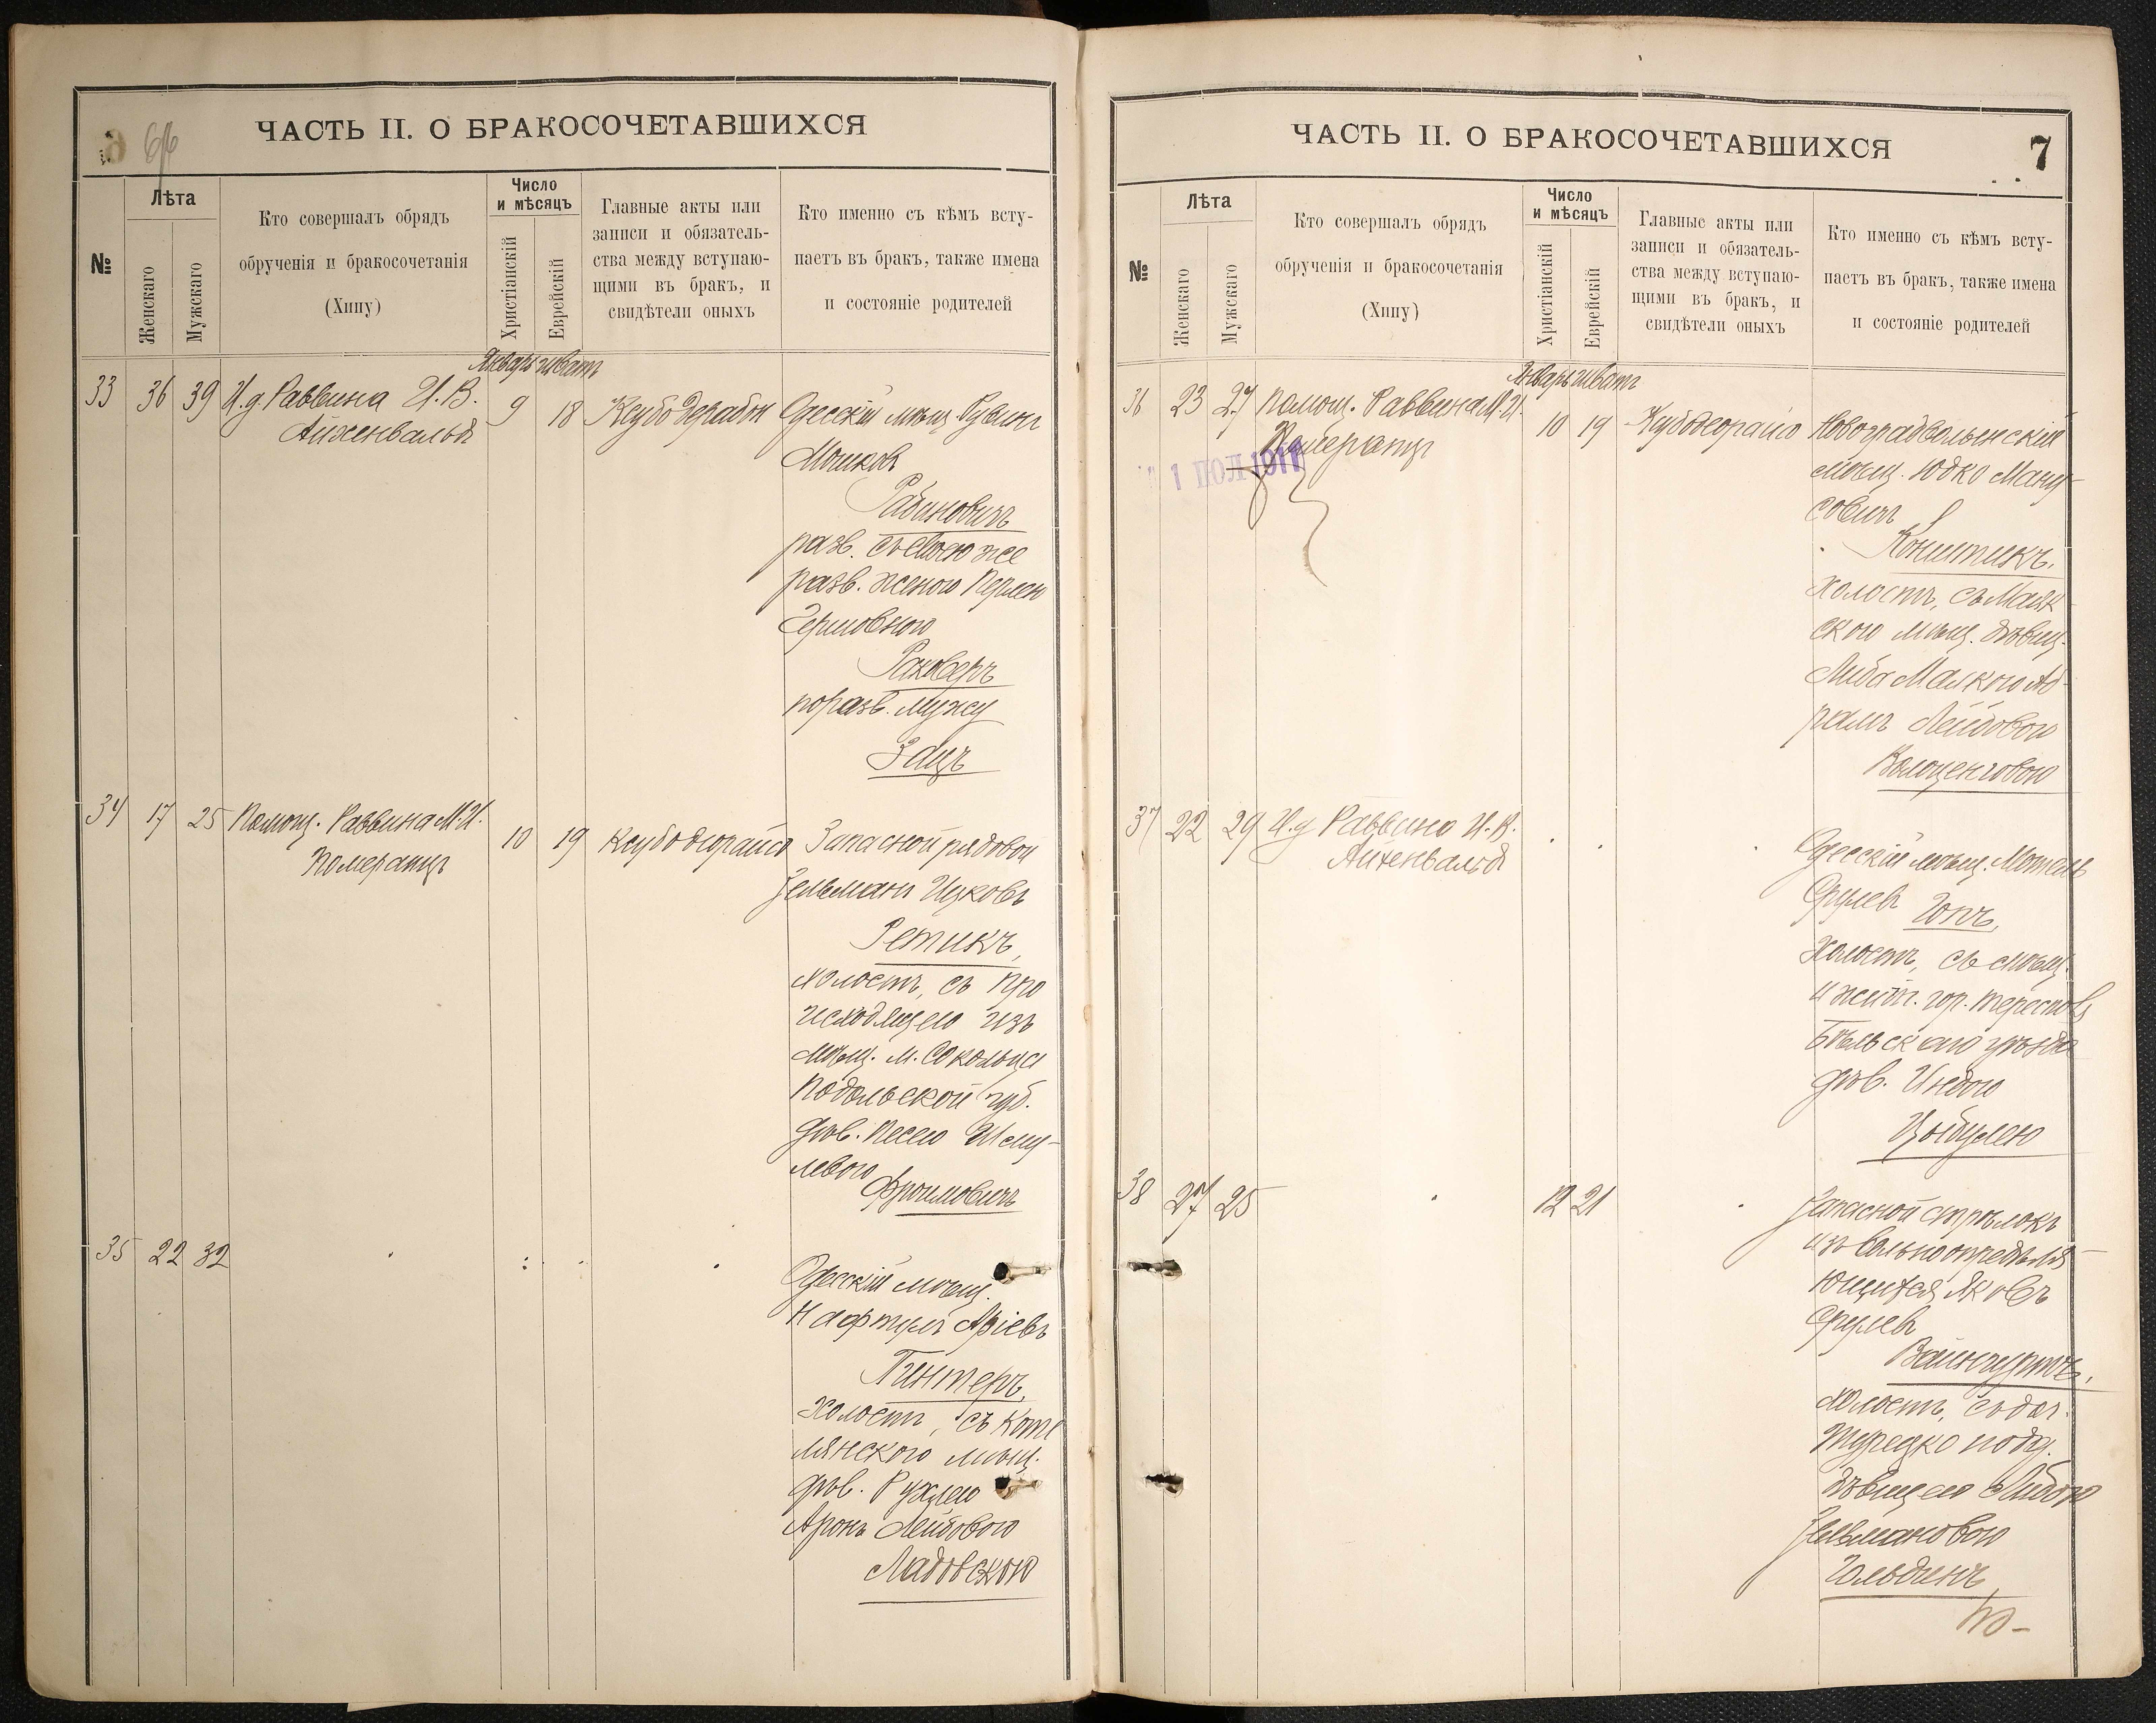 66
ЧАСТЬ II. О БРАКОСОЧЕТАВШИХСЯ
№
Лѣта
Женскаго
Мужскаго
Кто совершалъ обрядъ
обрученія и бракосочетанія
(Хипу)
Число
и мѣсяцъ
Христіанскій
Еврейскій
Главные акты или
записи и обязатель-
ства между вступаю-
щими въ бракъ, и
свидѣтели оныхъ
Кто именно съ кѣмъ всту-
паетъ въ бракъ, также имена
и состояніе родителей
Январь шватъ
33 36 39 И.д. Раввина И. В.
Айхенвальд
9 18
Одесскій мѣщ. Рувинъ
Мошковъ
Рабиновичъ
разв. съ своею же
разв. женою Перлею
Гершовною
Раковеръ
по разв. мужу
Зацъ
34 17 25 Помощ. Раввина М.И.
Померанцъ
10 19
Запасной рядовой
Зельманъ Ицковъ
Ретикъ,
холостъ, съ про
исходящею изъ
мѣщ. м. Сокольца
Подольской губ.
дѣв. Песею Шму-
левою
Фроимовичъ
35 22 32
Одесскій мѣщ.
Нафтулъ Аріевъ
Гинтеръ,
холостъ, съ Коте
лянскою мѣщ.
дѣв. Рухлею
Аронъ Лейбовою
Ладовскою
ЧАСТЬ II. О БРАКОСОЧЕТАВШИХСЯ
7
№
Лѣта
Женскаго
Мужскаго
Кто совершалъ обрядъ
обрученія и бракосочетанія
(Хипу)
Число
и мѣсяцъ
Христіанскій
Еврейскій
Главные акты или
записи и обязатель-
ства между вступаю-
щими въ бракъ, и
свидѣтели оныхъ
Кто именно съ кѣмъ всту-
паетъ въ бракъ, также имена
и состояніе родителей
Январь шватъ
36 23 27 Помощ. Раввина М.И.
Померанцъ
1 ІЮЛ 1911
10 19
Новоградволынскій
мѣщ. ЮдкоМану-
совичъ
Конштикъ,
холостъ, съ Маяк
скою мѣщ. дѣвиц.
Либа Малкою Аб-
рамъ Лейбовою
37 22 29 И.д Раввина И. В.
Айхенвальд
Одесскій мѣщ. Мотель
Срулевъ Гопъ,
холостъ, съ мѣщ.
и жит. гор. Тересполь
Бѣльскаго уѣзда
дѣв. Индою
Цыбулею
38 27 25
12 21
Запасной стрѣлокъ
изъ вольноопредѣля-
ющихся Яковъ
Срулевъ
Вайнгуртъ,
холостъ, съ доч.
Турецко подд.
дѣвицею Либою
Зельмановою
Гольдинъ